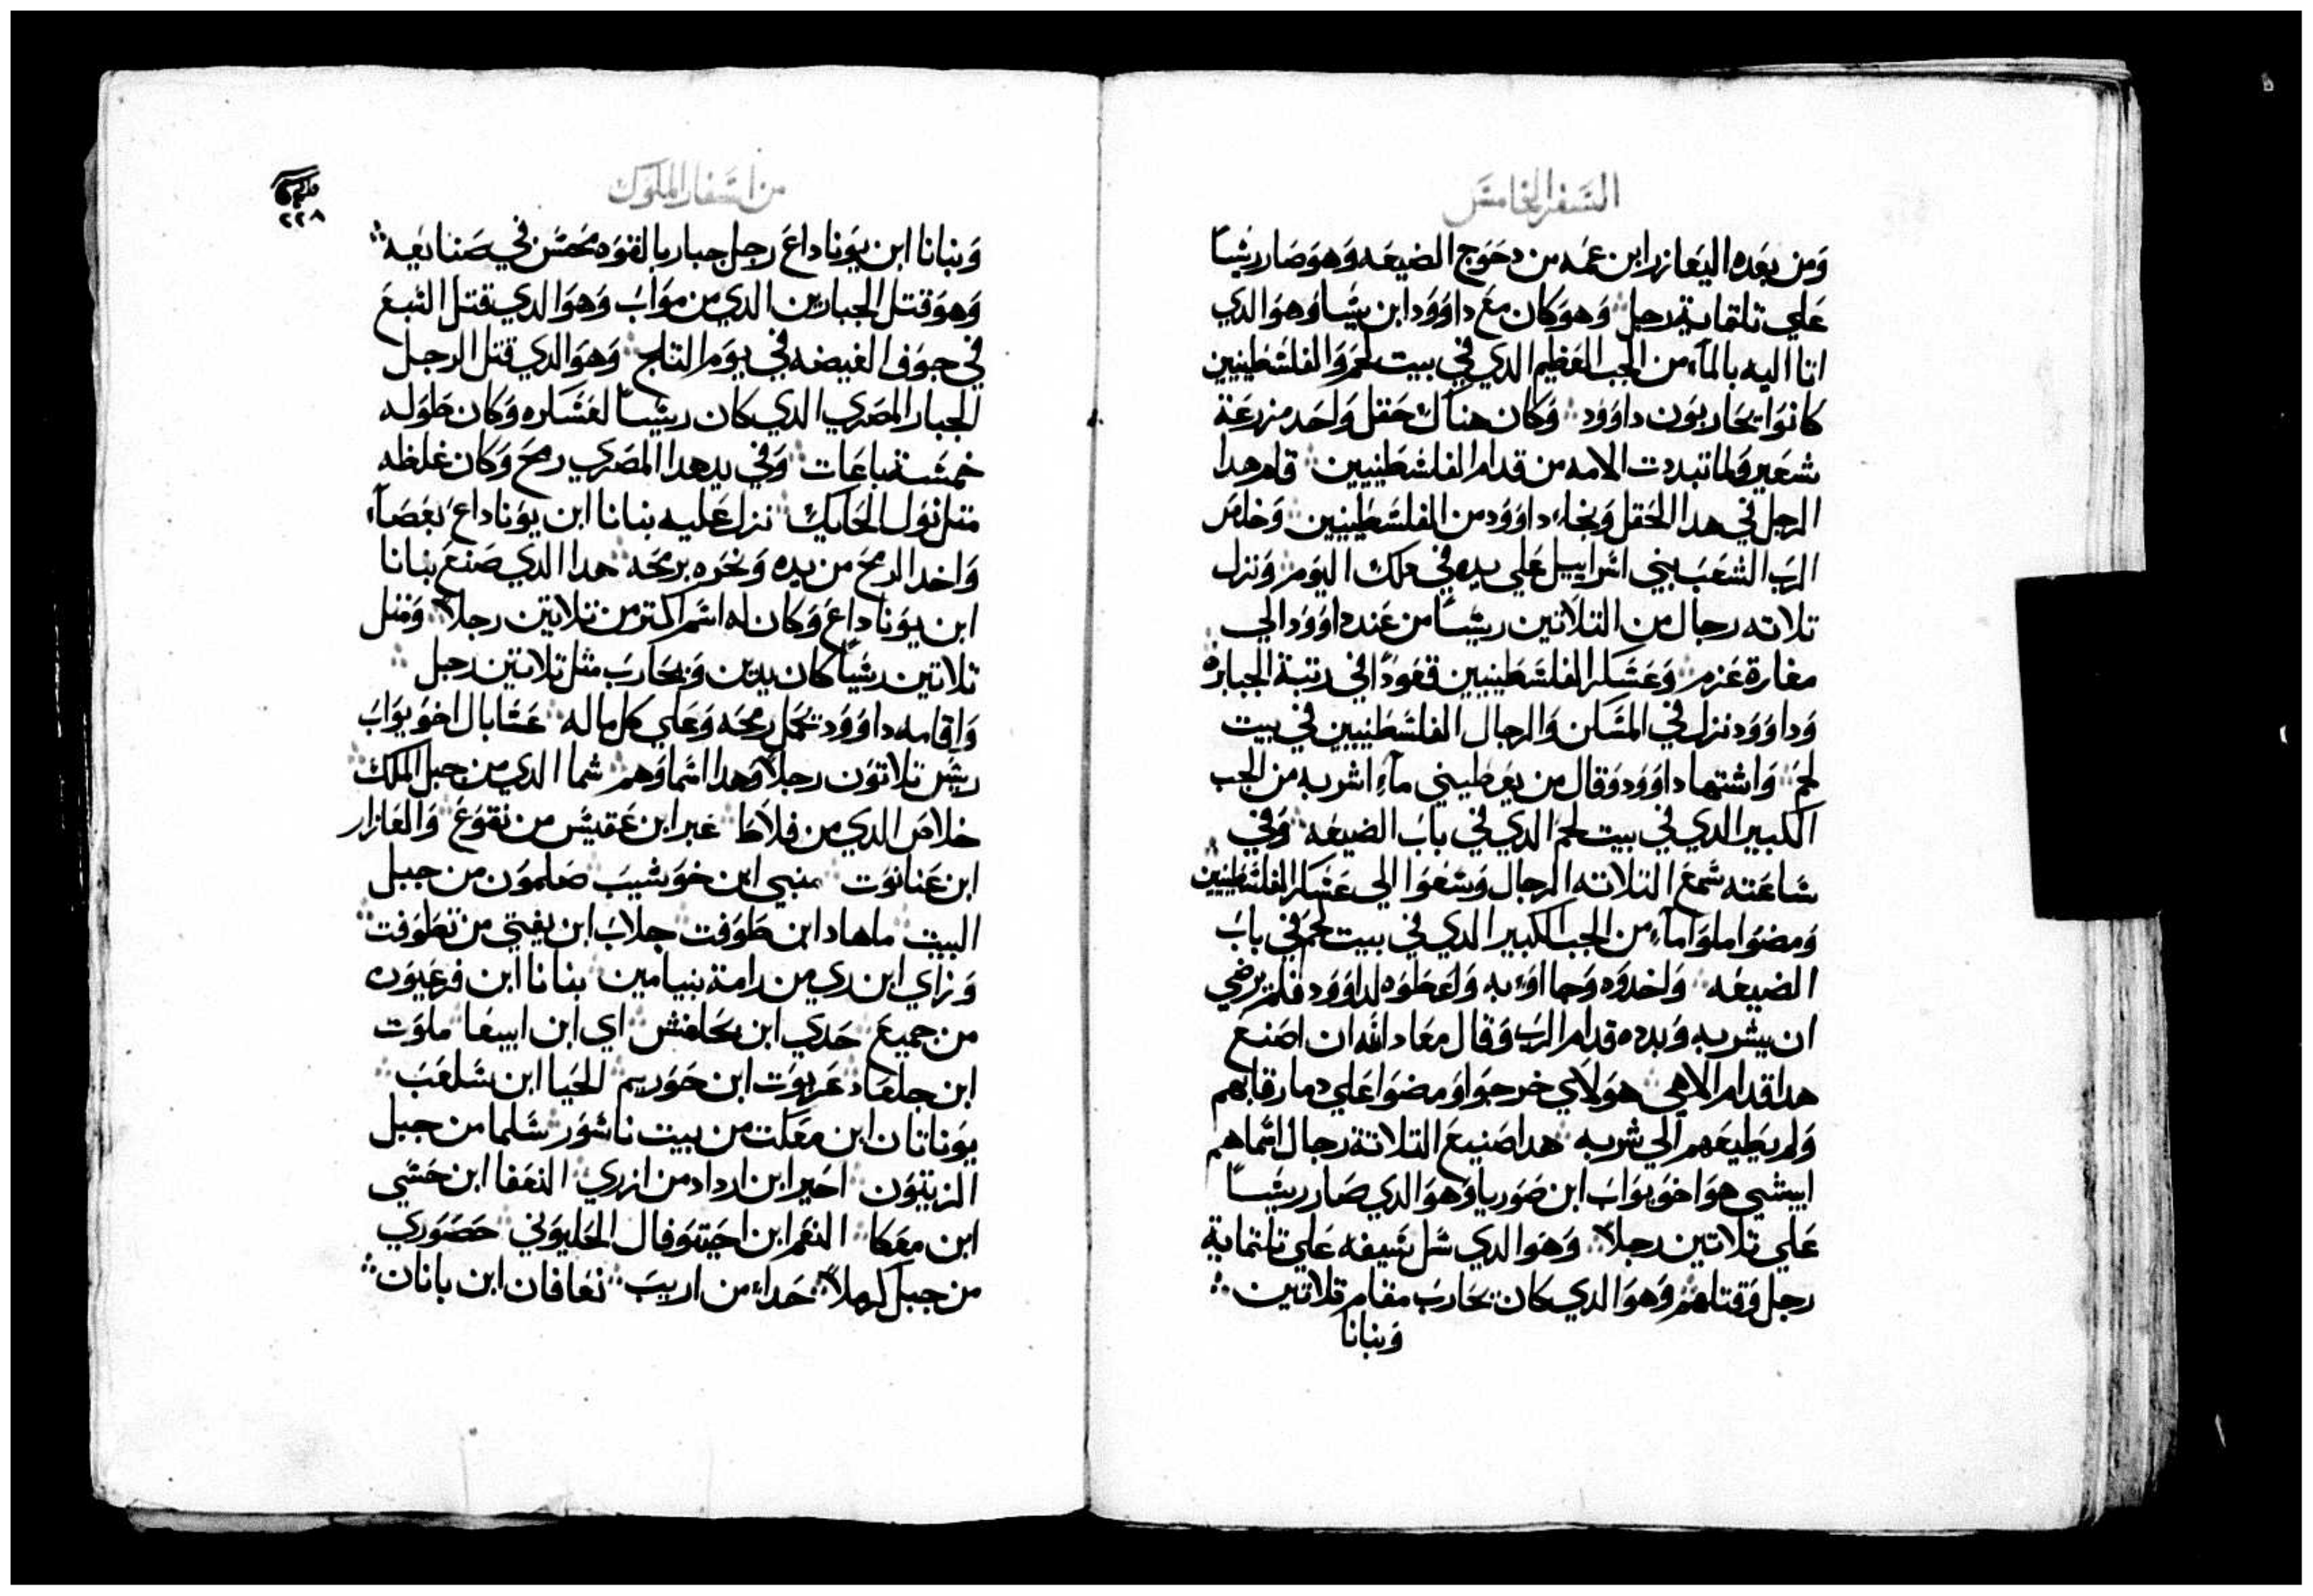 السفر الخامس
ومن بعده اليعازر ابن عمه من دحوج الضيعه وهو صار ريسًا
علي تلتماية رجل وهو كان مع داوود ابن يسا وهو الدي
اتا اليه بالمآء من الجب العظيم الدي في بيت لحم والفلسطينيين
كانوا يحاربون داوود وكان هناك حقل واحد مزرعة
شعير ولما تبددت الامه من قدام الفلسطينيين قام هدا
الرجل في هدا الحقل ونجاء داوود من الفلسطينيين وخلص
الرب الشعب بني اسراييل علي يده في دلك اليوم ونزل
تلاته رجال من التلاتين ريسًا من عند داوود الي
مغارة عزم وعسكر الفلسطينيين قعودًا في رتبة الجبابره
وداوود نزل في المسكن والرجال الفلسطنيين في بيت
لحم واشتها داوود وقال من يعطيني مآء اشربه من الجب
الكبير الدي في بيت لحم الدي في باب الضيعه وفي
ساعته سمع التلاته الرجال وسعوا الي عسكر الفلسطنيين
ومضوا املوا مآء من الجب الكبير الدي في بيت لحم في باب
الضيعه واخدوه وجااوء به واعطوه لداوود فلم يرضي
ان يشربه وبدده قدام الرب وقال معاد الله ان اصنع
هدا قدام الاهي هولاي خرجوا ومضوا علي دما رقابهم
ولم يطيعهم الي شربه هدا صنيع التلاتة رجال اسماهم
ابيشي هو اخو يواب ابن صوريا وهو الدي صار ريسًا
علي تلاتين رجلاً وهو الدي سل سيفه علي تلتماية
رجل وقتلهم وهو الدي كان يحارب مقام تلاتين
وبنانا
من اسفار الملوك
٢٢٨
وبنانا ابن يوناداع رجل جبار بالقوه محسن في صنايعه
وهو قتل الجبارين الدي من مواب وهو الدي قتل السبع
في جوف الغيضه في يوم التلج وهو الدي قتل الرجل
الجبار المصري الدي كان ريسًا لعسكره وكان طوله
خمسة باعات وفي يد هدا المصري رمح وكان غلظه
متل نول الحايك نزل عليه بنانا ابن يوناداع بعصآء
واخد الرمح من يده ونحره برمحه هدا الدي صنع بنانا
ابن يوناداع وكان له اسم اكتر من تلاتين رجلاً ومتل
تلاتين ريسًا كان يدين ويحارب مثل تلاتين رجل
واقامه داوود يحمل رمحه وعلي كل ماله عسابال اخو يواب
ريس تلاتون رجلاً وهدا اسماوهم شما الدي من جبل الملك
خلاص الدي من فلاط عبر ابن عقيس من تقوع والعازار
ابن عناتوت منبي ابن خوشيب صلمون من جبل
البيت ماهاد ابن طوفت جلاب ابن يفتي من تطوفت
وزاي ابن ري من رامة بنيامين بنانا ابن فرعيون
من جميع حدي ابن بحلفش اي ابن ابيعا ملوت
ابن جلعاد عربوت ابن حوريم الحيا ابن سلعب
يوناتان ابن معكت من بيت ناشور سلما من جبل
الزيتون احير ابن ارداد من ازري النعفا ابن حسي
ابن معكا النعم ابن اجتوفال الحليوني حصوري
من جبل كرملا حداء من اريب نعافان ابن بانان